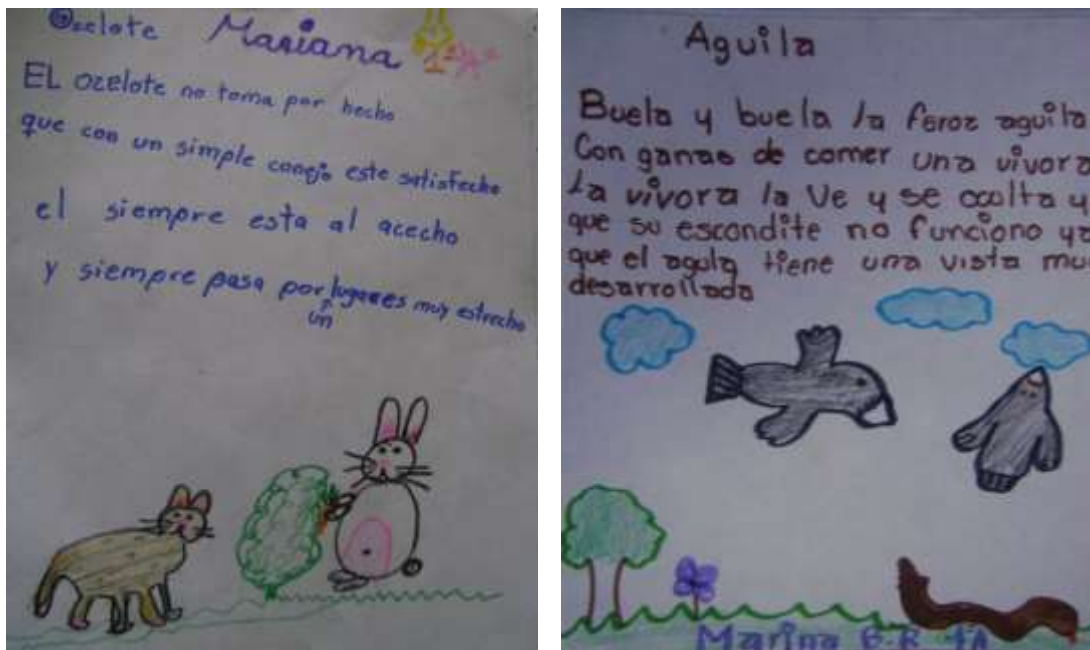 Ozelote Mariana 1°A
EL Ozelote no toma por hecho
que con un simple conejo este satisfecho
el siempre esta al acecho
y siempre pasa por lugares muy estrecho
un
Aguila
Buela y buela la feroz aguila
Con ganas de comer una vivora
La vivora la Ve y se ocolta y
que su escondite no funciono ya
que el agula tiene una vista mu
desarrollada
Marina B.R 1A